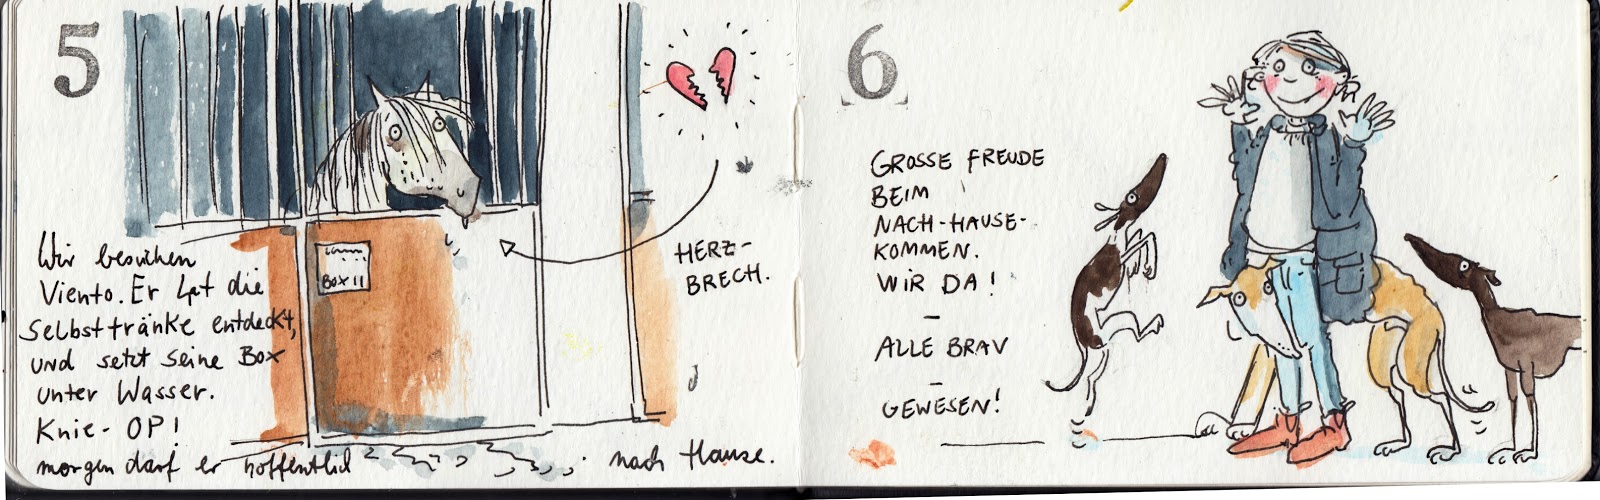 5
Wir besuchen
Viento. Er hat die
Selbsttränke entdeckt,
und setzt seine Box
unter Wasser.
Knie-OP!
morgen darf er hoffentlich nach Hause.
BOX 11
HERZ-
BRECH.
6
GROSSE FREUDE
BEIM
NACH-HAUSE-
KOMMEN.
WIR DA!
–
ALLE BRAV
–
GEWESEN!